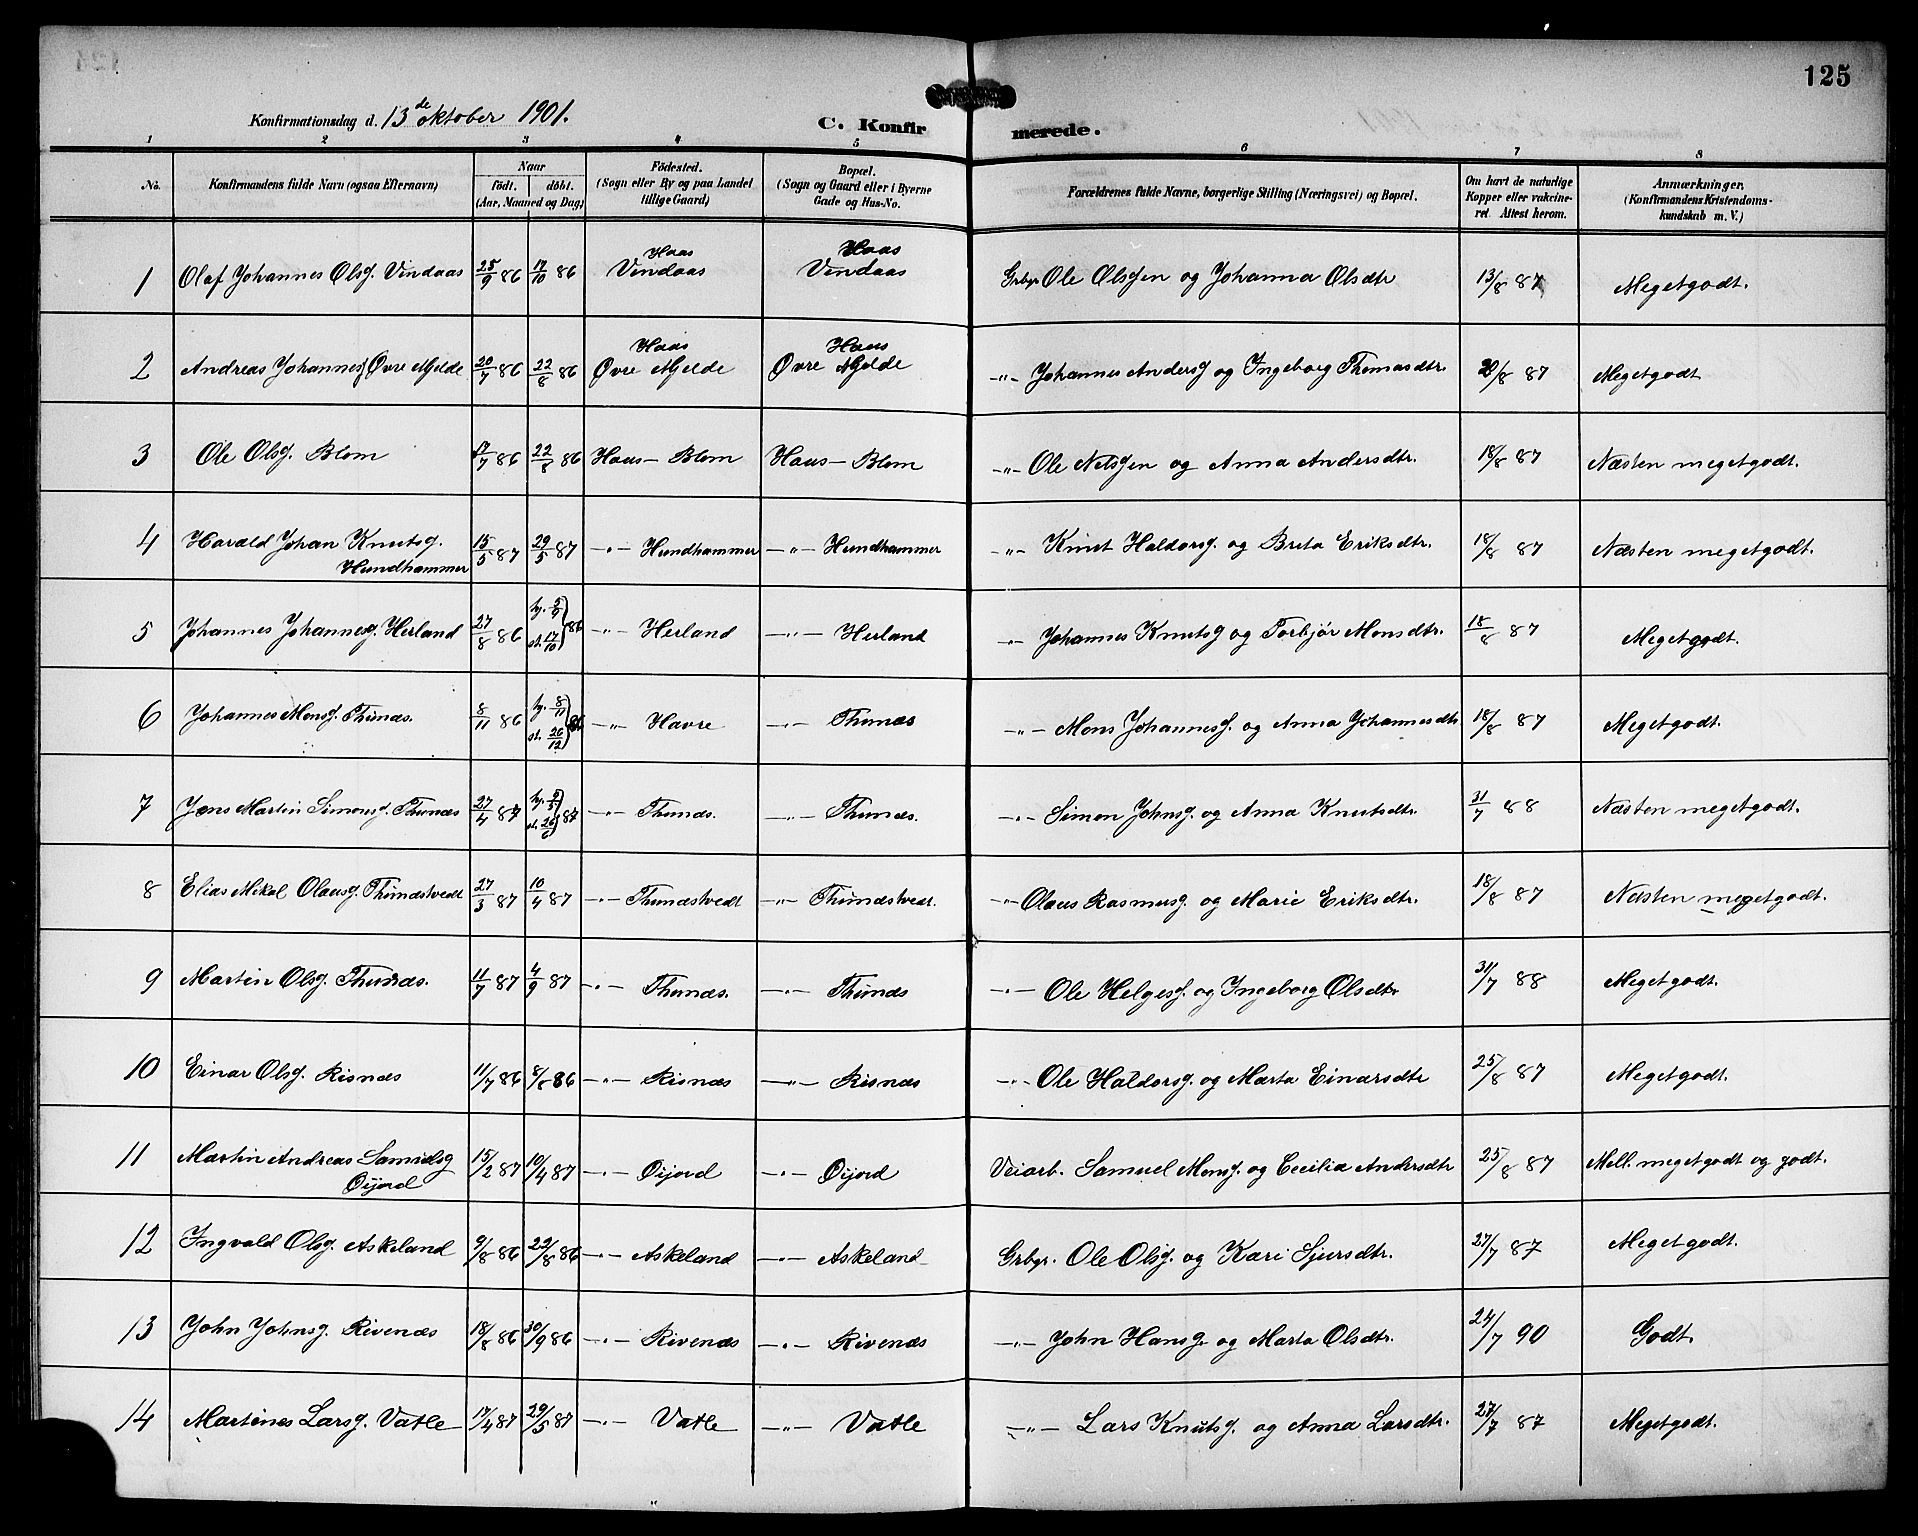 125
Konfirmationsdag d. 13de oktober 1901.
C. Konfirmerede.
1 2 3 4 5 6 7 8
No. Konfirmandens fulde Navn (ogsaa Efternavn) Naar födt. döbt. (Aar, Maaned og Dag) Födested. (Sogn eller By og paa Landet tillige Gaard) Bopæl. (Sogn og Gaard eller i Byerne Gade og Hus-No. Forældrenes fulde Navne, borgerlige Stilling (Næringsvei) og Bopæl. Om havt de naturlige Kopper eller vakcineret. Attest herom. Anmærkninger. (Konfirmandens Kristendomskundskab m. V.)
1 Olaf Johannes Olsg. Vindaas 25/9 86 17/10 86 Haas Vindaas Haas Vindaas Grbgr Ole Olsgen og Johanna Olsdtr 13/8 87 Megetgodt.
2 Andreas Johannesg Øvre Mjelde 20/7 86 22/8 86 Haas Øvre Mjelde Haus Øvre Mjelde -"- Johannes Andersg og Ingeborg Thomasdtr. 20/8 87 Megetgodt
3 Ole Olsg. Blom 17/7 86 22/8 86 Haus - Blom Haus - Blom -"- Ole Nelsgen og Anna Andersdtr. 18/8 87 Næsten megetgodt.
4 Harald Johan Knutsg. Hundhammer 15/5 87 29/5 87 -"- Hundhammer -"- Hundhammer -"- Knut Haldorsg. og Brita Eriksdtr. 18/8 87 Næsten megetgodt.
5 Johannes Johannesg. Herland 27/8 86 hj. 5/9 st. 17/10 } 86 -"- Herland -"- Herland -"- Johannes Knutsg og Torbjør Monsdtr. 18/8 87 Megetgodt.
6 Johannes Monsg. Thunæs. 8/11 86 hj. 8/11 st. 26/12 } 86 -"- Havre -"- Thunæs -"- Mons Johannesg. og Anna Johannesdtr 18/8 87 Megetgodt.
7 Jens Martin Simonsg. Thunæs 27/4 87 hj. 5/5 st. 26/6 } 87 -"- Thunæs. -"- Thunæs. -"- Simon Johnsg. og Anna Knutsdtr. 31/7 88 Næsten megetgodt.
8 Elias Mikal Olausg. Thunæstvedt 27/3 87 10/4 87 -"- Thunæstvedt -"- Thunæstvedt. -"- Olaus Rasmusg. og Marie Eriksdtr. 18/8 87 Næsten megetgodt.
9 Martin Olsg. Thunæs. 11/7 87 4/9 87 -"- Thunæs. -"- Thunæs -"- Ole Helgesg. og Ingeborg Olsdtr 31/7 88 Megetgodt.
10 Einar Olsg. Risnæs 11/7 86 8/8 86 -"- Risnæs -"- Risnæs -"- Ole Haldorsg. og Marta Einarsdtr 25/8 87 Megetgodt.
11 Martin Andreas Samuelsg Øijord 15/2 87 10/4 87 -"- Øijord -"- Øijord Veiarb. Samuel Monsg. og Cecilia Andersdtr 25/8 87 Mell. megetgodt og godt.
12 Ingvald Olsg. Askeland 9/8 86 22/8 86 -"- Askeland -"- Askeland Grbgr. Ole Olsg. og Kari Sjursdtr. 27/7 87 Megetgodt.
13 John Johnsg. Rivenæs 18/8 86 30/9 86 -"- Rivenæs -"- Rivenæs -"- John Hansg og Marta Olsdtr. 24/7 90 Godt.
14 Martines Larsg. Vatle 17/4 87 29/5 87 -"- Vatle -"- Vatle -"- Lars Knutsg. og Anna Larsdtr. 27/7 87 Megetgodt.